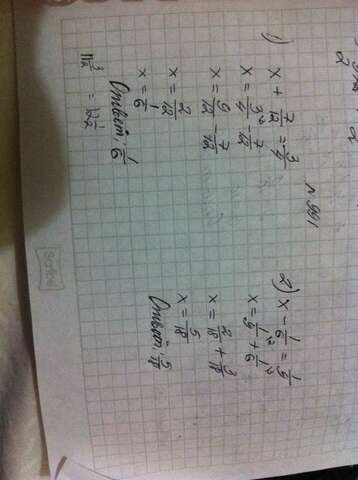 № 991
1) x + 7/12 = 3/4
x = 3/4 - 7/12
x = 9/12 - 7/12
x = 2/12
x = 1/6
Ответ: 1/6
2) x - 1/6 = 1/9
x = 1/9 + 1/6
x = 2/18 + 3/18
x = 5/18
Ответ: 5/18